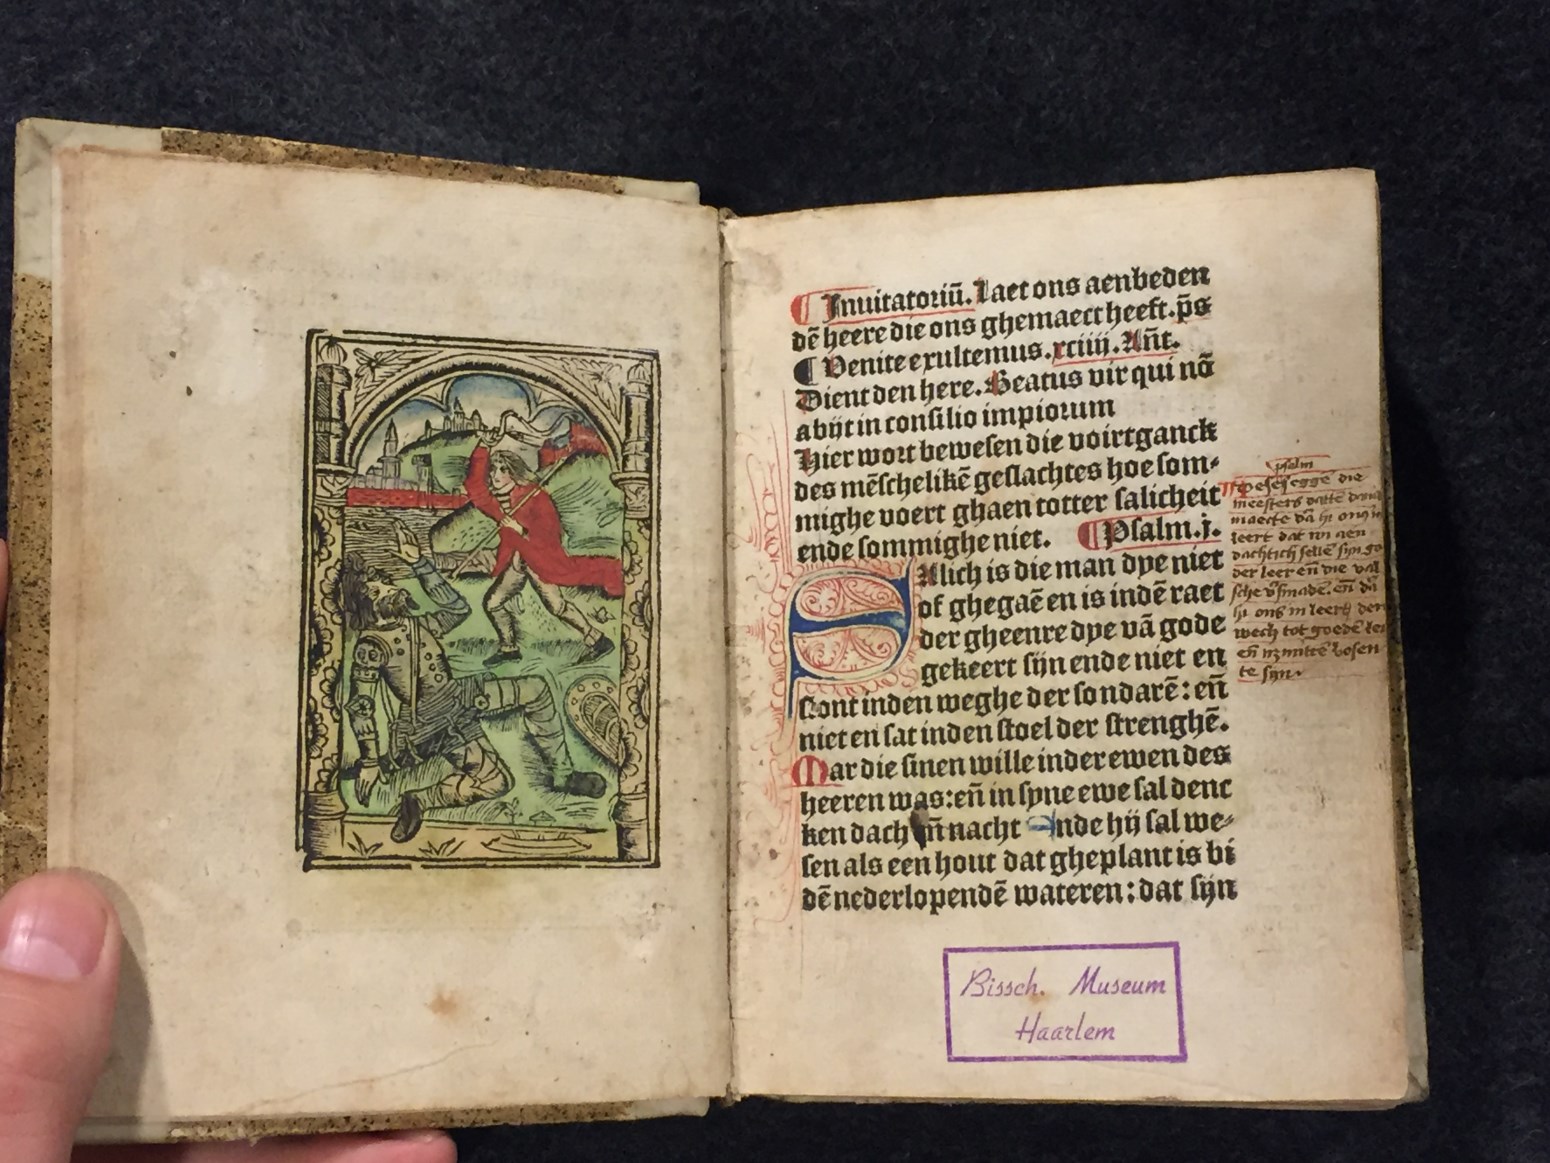 ¶ Inuitatoriū. Laet ons aenbeden
dē heere die ons ghemaect heeft. p̄s
¶ Venite exultemus. xciiij. Añt.
Dient den here. Beatus vir qui nō
abijt in consilio impiorum
Hier wort bewesen die voirtganck
des mēschelikē geslachtes hoe som-
mighe voert ghaen totter salicheit
ende sommighe niet. ¶ Psalm. j.
SAlich is die man dye niet
of ghegaē en is indē raet
der gheenre dye vā gode
gekeert sijn ende niet en
stont inden weghe der sondarē: eñ
niet en sat inden stoel der strenghē.
Mar die sinen wille inder ewen des
heeren was: eñ in syne ewe sal denc
ken dach eñ nacht Ende hij sal we-
sen als een hout dat gheplant is bi
dē nederlopendē wateren: dat sijn
psalm
die
meesters
maecte vā hi ons
leert dat wi aen
dachtich selle sijn
der leer eñ die val
sche eñ dā
hi ons in leert den
wech tot goedē
eñ
te sijn.
Bissch. Museum
Haarlem